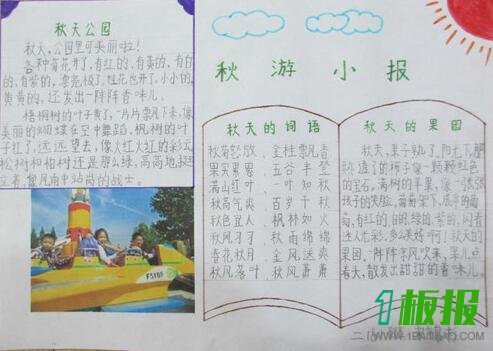 秋天公园
秋天,公园里可美丽啦!
各种菊花开了,有红的、有黄的、有白
的、有紫的,漂亮极了。桂花也开了,小小的,
黄黄的,还发出一阵阵香味儿。
梧桐树的叶子黄了,一片片飘风下来,像
美丽的蝴蝶在空中舞蹈。枫树的叶
子红了,远远望去,像火红火红的彩云
松树和柏树还是那么绿,高高地挺
立着,像风雨中站岗的战士。
秋游小报
秋天的词语
秋菊怒放、金桂飘香
果实累累、五谷丰登
满山红叶、一叶知秋
秋高气爽、百岁千秋
秋色宜人、枫林如火
秋风习习、秋雨绵绵
春花秋月、金风送爽
秋风落叶、秋风萧萧
秋天的果园
秋天,果子熟了,阳光下那
熟透了的柿子像一颗颗红色
的宝石。满树的苹果,像一张张
孩子的笑脸。葡萄架下,成串的葡
萄,有红的、白的、绿的、紫的,闪着
迷人光彩,多么美妙啊!秋天的
果园,阵阵凉风吹来,果儿点
点头,散发出甜甜的香味儿。
F5188
1板报
WWW.12999.COM